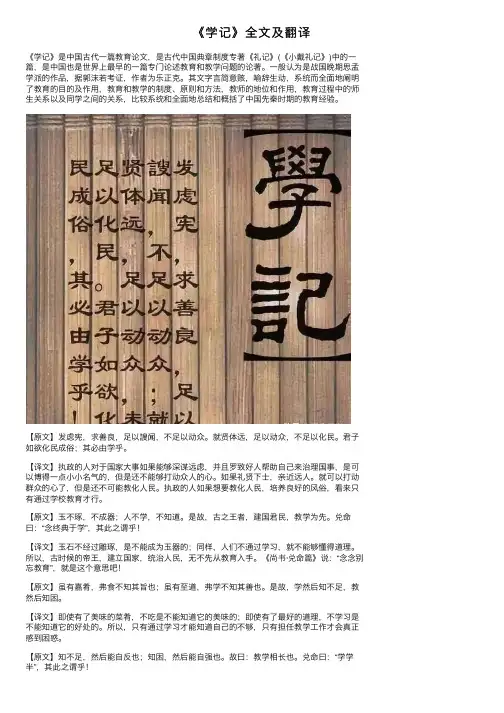 《学记》全文及翻译
《学记》是中国古代一篇教育论文，是古代中国典章制度专著《礼记》(《小戴礼记》)中的一
篇，是中国也是世界上最早的一篇专门论述教育和教学问题的论著。一般认为是战国晚期思孟
学派的作品，据郭沫若考证，作者为乐正克。其文字言简意赅，喻辞生动，系统而全面地阐明
了教育的目的及作用，教育和教学的制度、原则和方法，教师的地位和作用，教育过程中的师
生关系以及同学之间的关系，比较系统和全面地总结和概括了中国先秦时期的教育经验。
【學記】
发虑宪，求善良，足以
謏聞，不足以动众；就
贤体远，足以动众，未
足以化民。君子如欲化
民成俗，其必由学乎！
【原文】发虑宪，求善良，足以謏闻，不足以动众。就贤体远，足以动众，不足以化民。君子
如欲化民成俗；其必由学乎。
【译文】执政的人对于国家大事如果能够深谋远虑，并且罗致好人帮助自己来治理国事，是可
以博得一点小小名气的，但是还不能够打动众人的心。如果礼贤下士，亲近远人。就可以打动
群众的心了，但是还不可能教化人民。执政的人如果想要教化人民，培养良好的风俗，看来只
有通过学校教育才行。
【原文】玉不琢，不成器；人不学，不知道。是故，古之王者，建国君民，教学为先。兑命
曰：“念终典于学”，其此之谓乎！
【译文】玉石不经过雕琢，是不能成为玉器的；同样，人们不通过学习，就不能够懂得道理。
所以，古时候的帝王，建立国家，统治人民，无不先从教育入手。《尚书·兑命篇》说：“念念别
忘教育”，就是这个意思吧！
【原文】虽有嘉肴，弗食不知其旨也；虽有至道，弗学不知其善也。是故，学然后知不足，教
然后知困。
【译文】即使有了美味的菜肴，不吃是不能知道它的美味的；即使有了最好的道理，不学习是
不能知道它的好处的。所以，只有通过学习才能知道自己的不够，只有担任教学工作才会真正
感到困惑。
【原文】知不足，然后能自反也；知困，然后能自强也。故曰：教学相长也。兑命曰：“学学
半”，其此之谓乎！